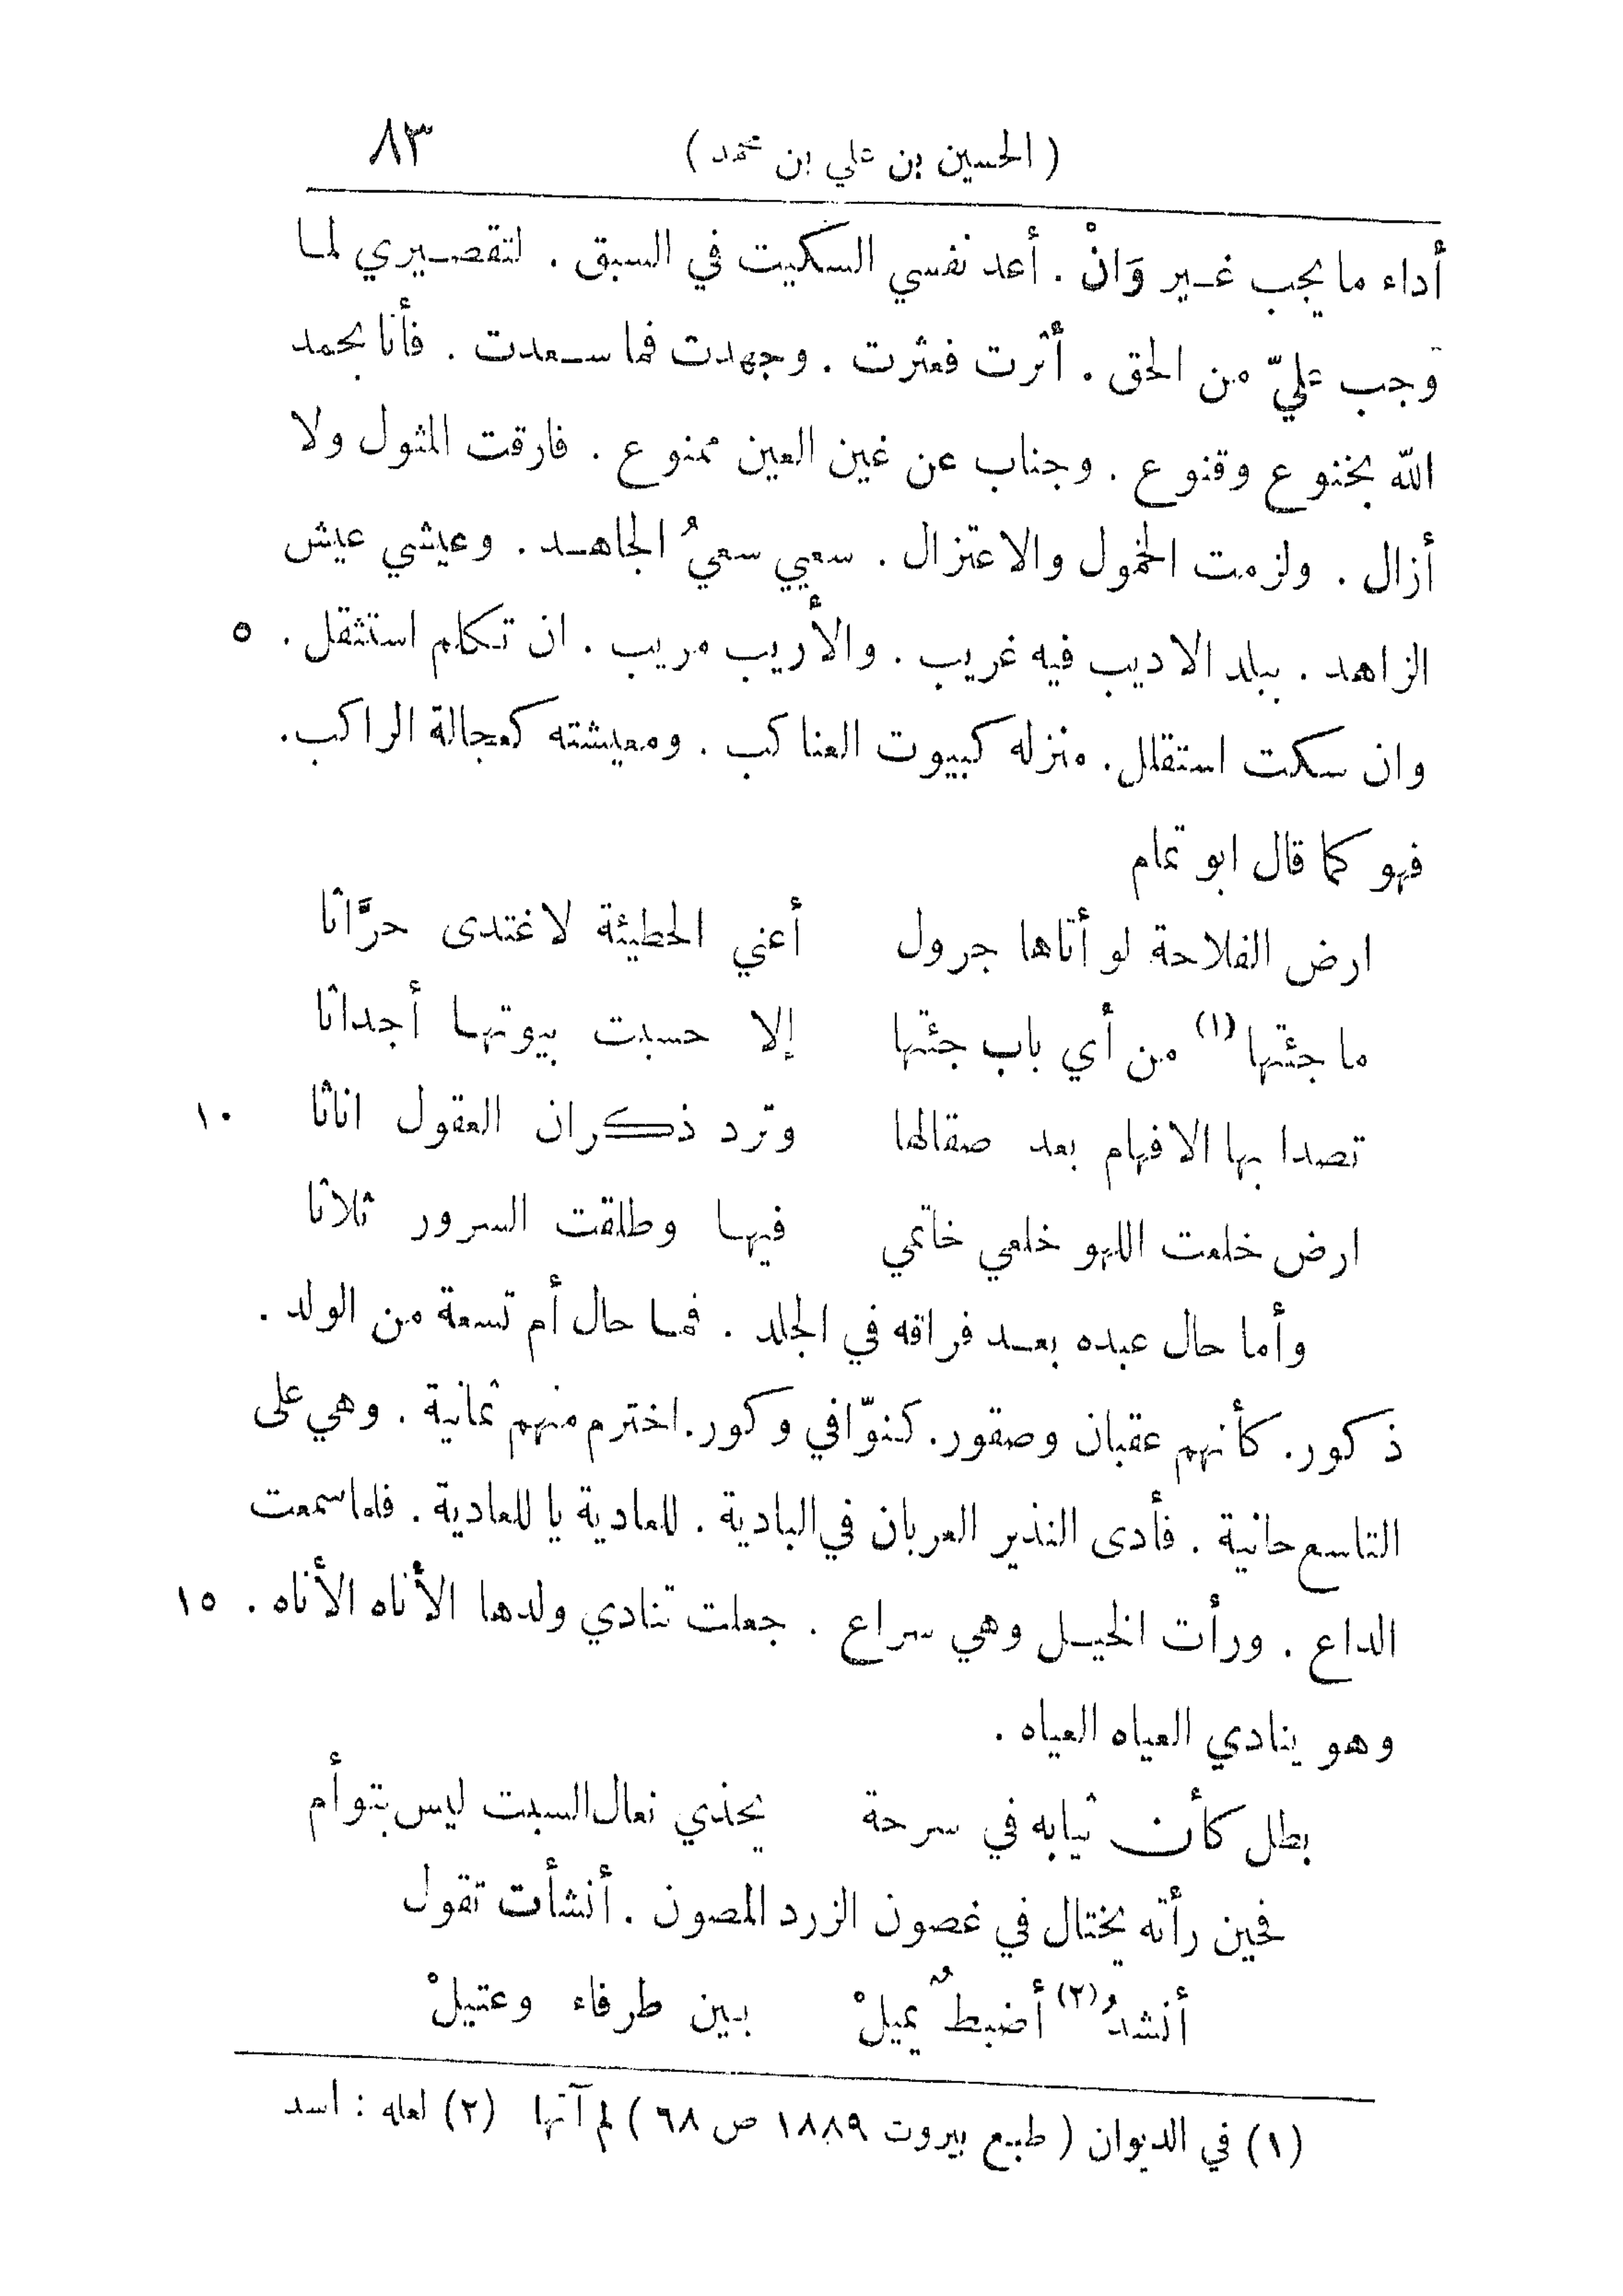 (الحسين بن علي بن محمد) ٨٣
أداء ما يجب غير وَانْ . أعد نفسي السكيت في السبق . لتقصيري لما
وجب عليّ من الحق . أثرت فعثرت . وجهدت فما سعدت . فأنا بحمد
الله بخنوع وقنوع . وجناب عن غين العين ممنوع . فارقت المثول ولا
أزال . ولزمت الخمول والاعتزال . سعيي سعيُ الجاهد . وعيشي عيش
الزاهد . ببلد الاديب فيه غريب . والأريب مريب . ان تكلم استثقل . ٥
وان سكت استقلل. منزله كبيوت العناكب . ومعيشته كعجالة الراكب.
فهو كما قال ابو تمام
ارض الفلاحة لو أتاها جرول أعني الحطيئة لاغتدى حرَّاثا
ما جئتها (١) من أي باب جئتها إلا حسبت بيوتها أجداثا
تصدا بها الافهام بعد صقالها وترد ذكران العقول اناثا ١٠
ارض خلعت اللهو خلعي خاتمي فيها وطلقت السرور ثلاثا
وأما حال عبده بعد فراقه في الجلد . فما حال أم تسعة من الولد .
ذكور. كأنهم عقبان وصقور. كنوّا في وكور. اخترم منهم ثمانية . وهي على
التاسع حانية . فأدى النذير العريان في البادية . للعادية يا للعادية . فلما سمعت
الداع . ورأت الخيل وهي سراع . جعلت تنادي ولدها الأناه الأناه . ١٥
وهو ينادي العياه العياه .
بطل كأن ثيابه في سرحة يحذي نعال السبت ليس بتوأم
فحين رأته يختال في غصون الزرد المصون . أنشأت تقول
أنشدُ (٢) أضبطٌ يميلْ بين طرفاء وعتيلْ
(١) في الديوان ( طبع بيروت ١٨٨٩ ص ٦٨ ) لم آتها (٢) لعله : اسد